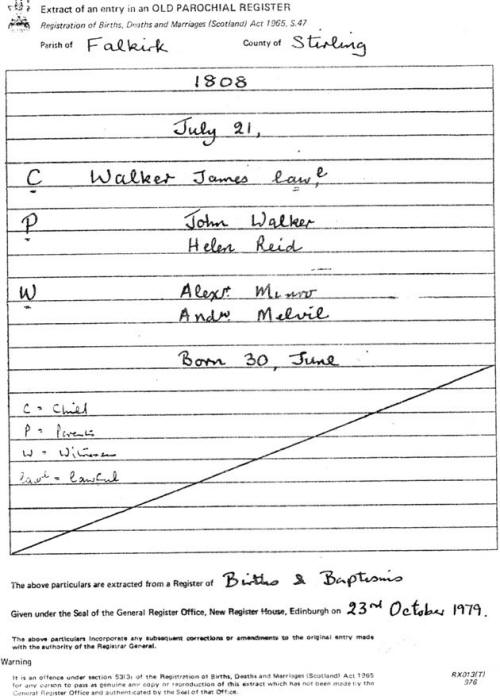 Extract of an entry in an OLD PAROCHIAL REGISTER
Registration of Births, Deaths and Marriages (Scotland) Act 1965, S.47
Parish of Falkirk County of Stirling
1808
July 21,
C Walker James lawl
P John Walker
Helen Reid
W Alexr. Munro
Andw. Melvil
Born 30, June
C = Child
P = Parents
W = Witnesses
lawl = lawful
The above particulars are extracted from a Register of Births & Baptisms
Given under the Seal of the General Register Office, New Register House, Edinburgh on 23rd October 1979.
The above particulars incorporate any subsequent corrections or amendments to the original entry made
with the authority of the Registrar General.
Warning
It is an offence under section 53(3) of the Registration of Births, Deaths and Marriages (Scotland) Act 1965
for any person to pass as genuine any copy or reproduction of this extract which has not been made by the
General Register Office and authenticated by the Seal of that Office.
RX013(T)
976